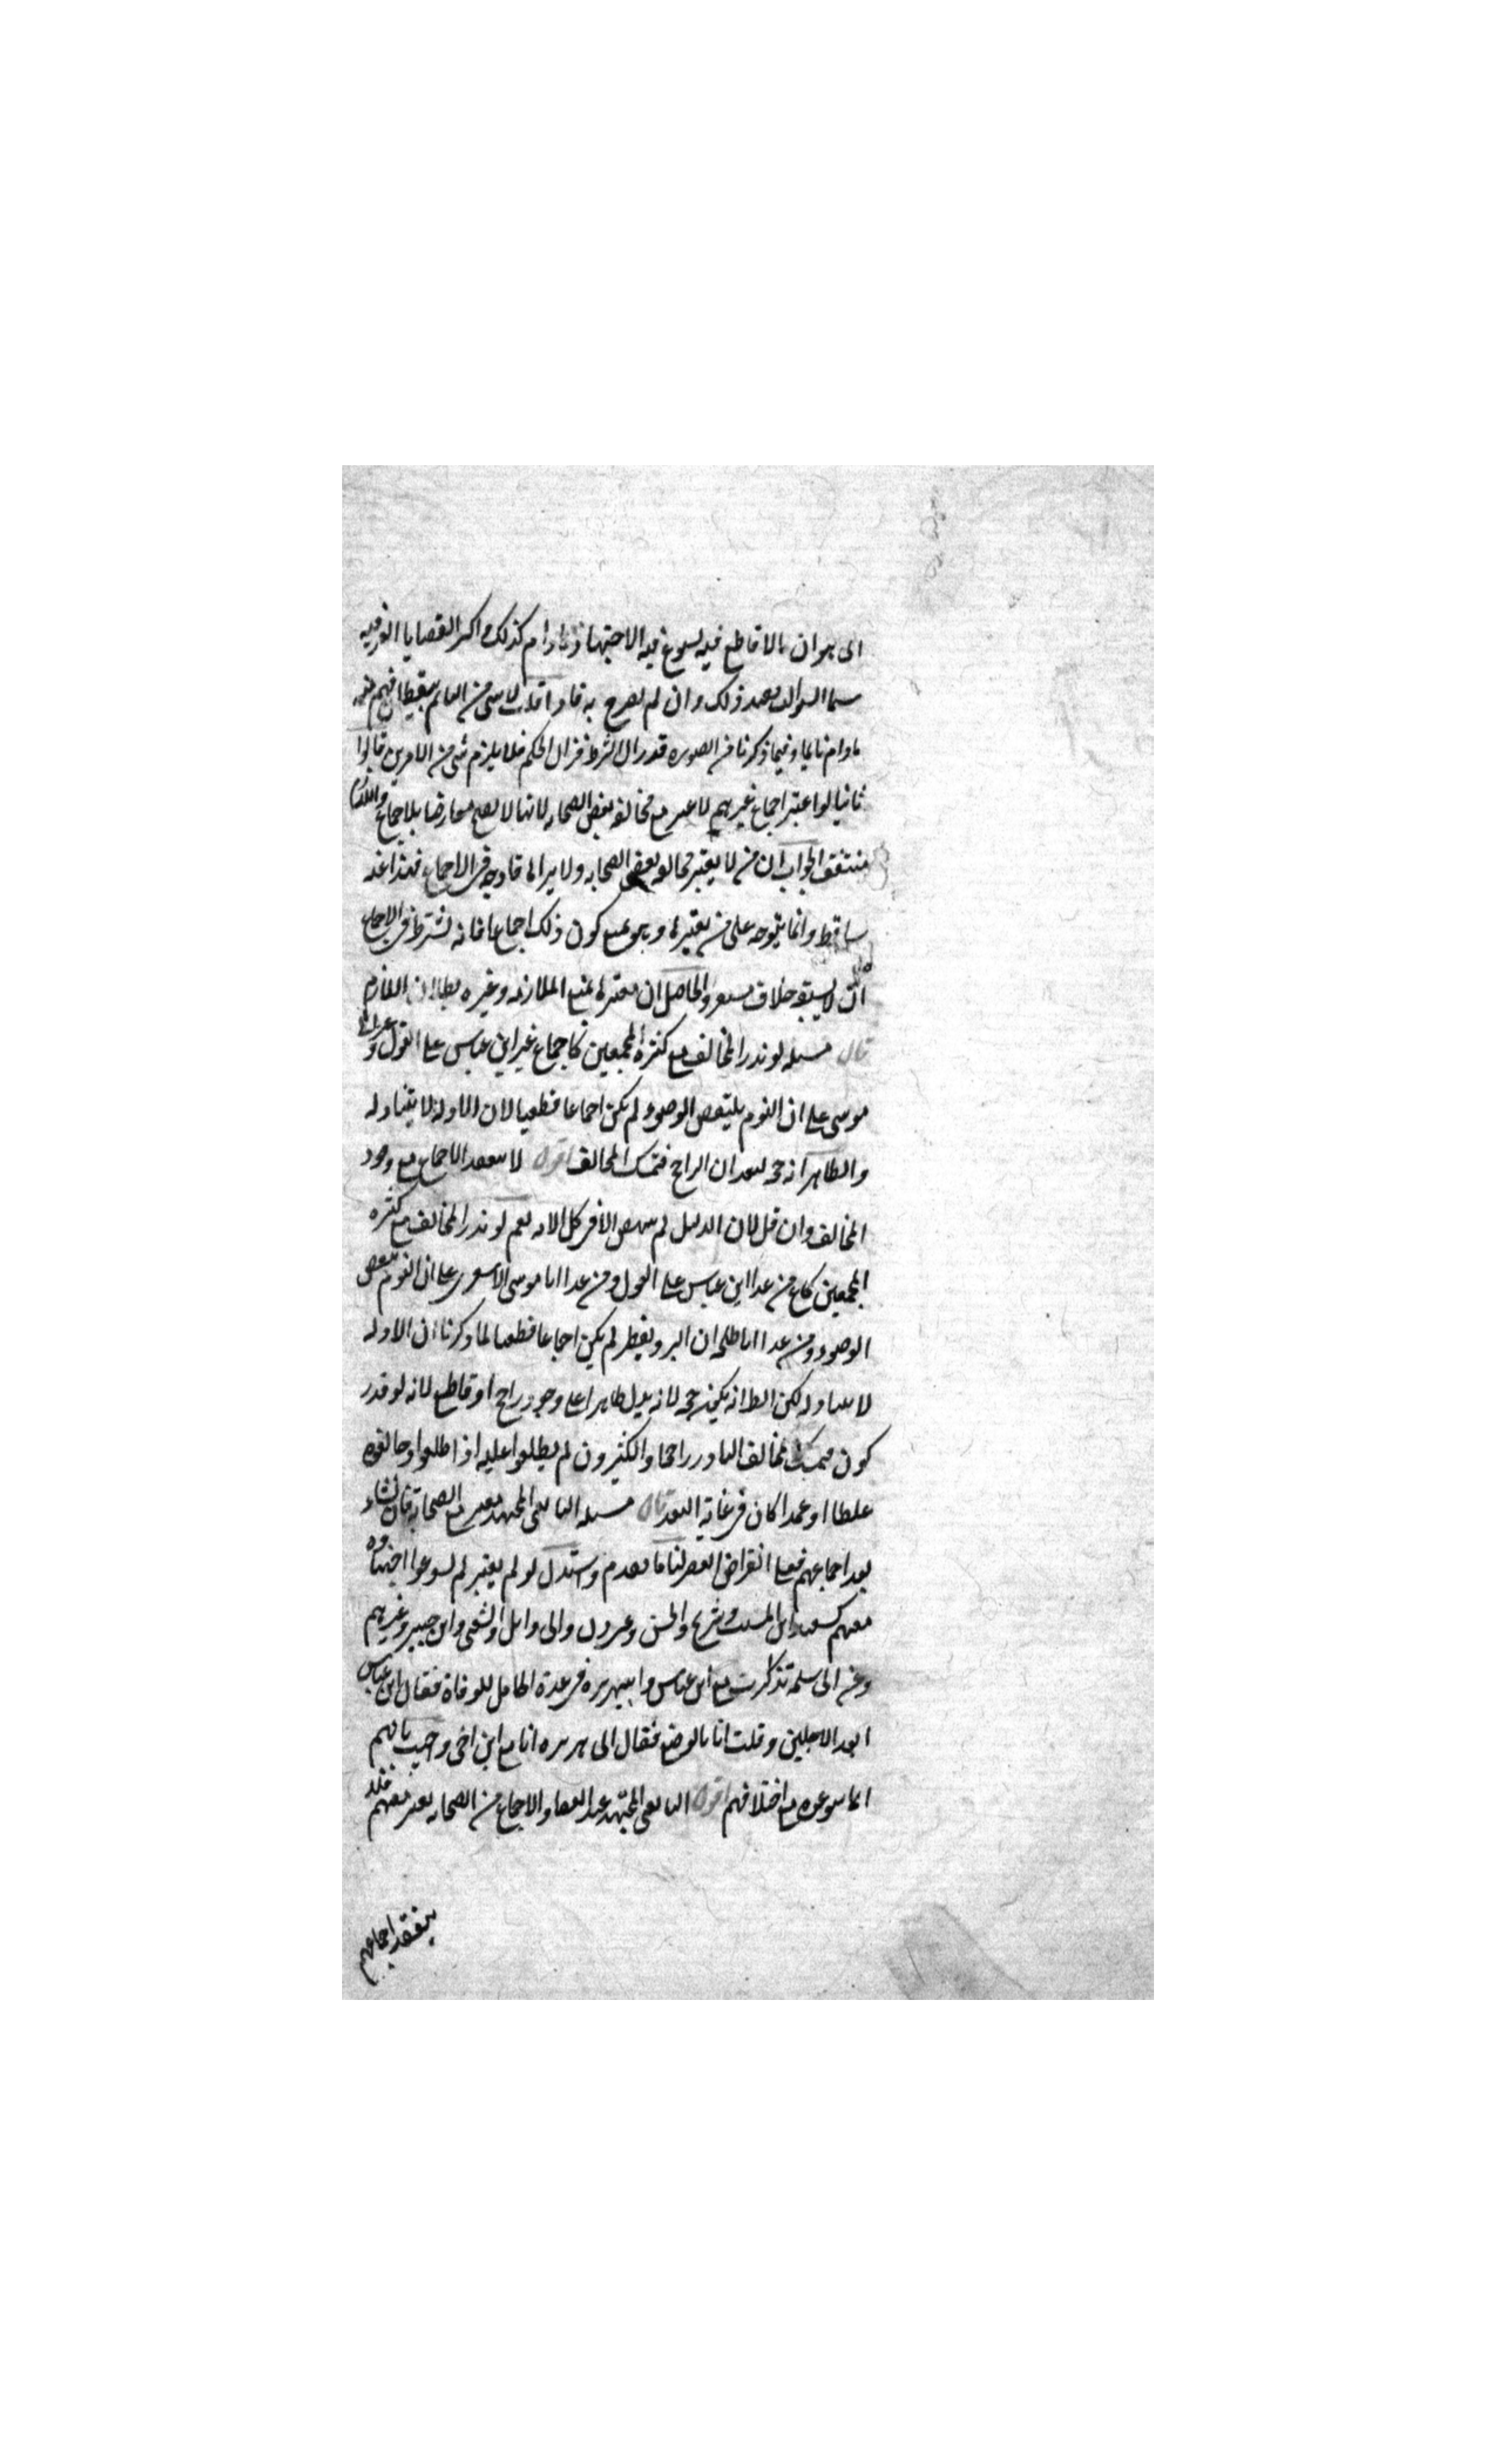 اى هو ان ما لا قاطع فيه يسوغ فيه الاجتهاد ما دام كذلك و اكثر القضايا العرفيه
سما السوالب يفهم ذلك وان لم يصرح به فاذا قلت لا شى من النائم بيقظان فهم منه
مادام نايما وفيما ذكرنا من الصوره قد زال الشرط فزال الحكم فلا يلزم شى من الامرين قالوا
ثانيا لو اعتبر اجماع غيرهم لاعتبر مع مخالفه بعض الصحابه لانها لا يصح معارضا للاجماع واللازم
منتف الجواب ان من لا يعتبر مخالفه بعض الصحابه ولا يراها قادحه فى الاجماع فهذا عنه
ساقط وانما يتوجه على من يعتبرها و هو يمنع كون ذلك اجماعا فانه يشترط فى الاجماع
ان لا يسبقه خلاف مستقر والحاصل ان معتبرها يمنع الملازمه وغيره بطلان اللازم
قال مسله لو ندر المخالف مع كثرة المجمعين كاجماع غير ابن عباس على العول و غير ابى
موسى على ان النوم ينقض الوضوء لم يكن اجماعا قطعيا لان الادله لا يتناوله
والظاهر انه حجه لبعد ان الراجح متمسك المخالف اقول لا ينعقد الاجماع مع وجود
المخالف وان قل لان الدليل لم ينهض الا فى كل الامه نعم لو ندر المخالف مع كثره
المجمعين كاجماع من عدا ابن عباس على العول ومن عدا ابا موسى الاشعرى على ان النوم ينقض
الوضوء ومن عدا ابا طلحه ان البرد يفطر لم يكن اجماعا قطعيا لما ذكرنا ان الادله
لا يتناوله لكن الظ انه يكون حجه لانه يدل ظاهرا على وجود راجح او قاطع لانه لو قدر
كون متمسك المخالف النادر راجحا والكثيرون لم يطلعوا عليه او اطلعوا وخالفوه
غلطا او عمدا كان فى غاية البعد قال مسله التابعى المجتهد معتبر مع الصحابة فان نشاء
بعد اجماعهم فعلى انقراض العصر لنا ما تقدم واستدل لو لم يعتبر لم يسوغوا اجتهاده
معهم كسعيد بن المسيب وشريح والحسن ومسروق وابى وائل والشعبى وابن جبير وغيرهم
وعن ابى سلمه تذاكرت مع ابن عباس وابى هريره فى عدة الحامل للوفاة فقال ابن عباس
ابعد الاجلين وقلت انا بالوضع فقال ابى هريره انا مع ابن اخى واجيب بانهم
انما سوغوه مع اختلافهم اقول التابعى المجتهد عند انعقاد الاجماع من الصحابه يعتبر معهم فلا
ينعقد اجماعهم